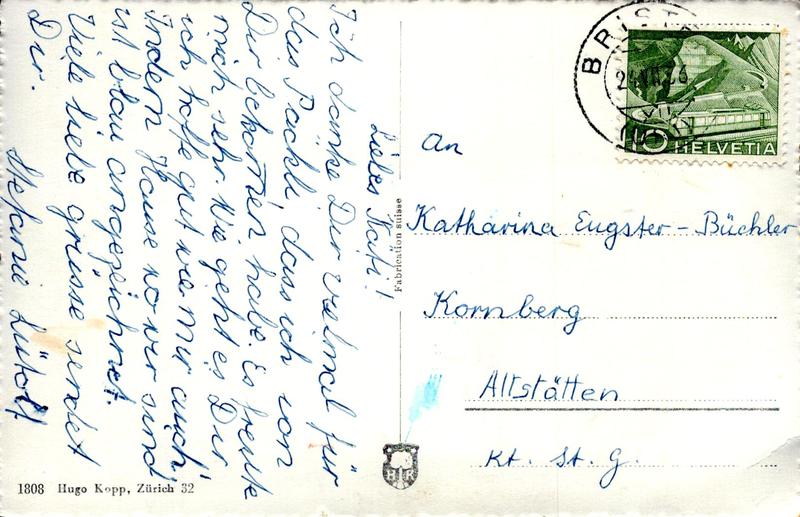 Liebes Käti!
Ich danke Dir vielmal für
das Päckli, dass ich von
Dir bekomen habe. Es freute
mich sehr. Wie geht es Dir
ich hoffe gut wie mir auch.
In dem Hause wo wir sind,
ist blau angezeichnet.
Viele liebe grüsse sendet
Dir.
Stefanie Lütolf
1808 Hugo Kopp, Zürich 32
Fabrication suisse
BRIST
10 HELVETIA
An
Katharina Eugster-Büchler
Kornberg
Altstätten
Kt. St. G.